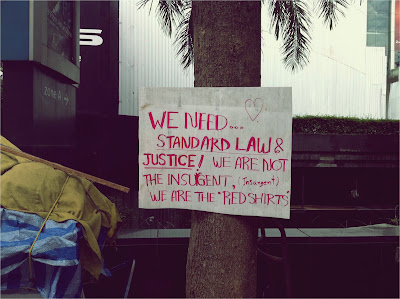 ZONE A
WE NEED....
STANDARD LAW &
JUSTICE! WE ARE NOT
THE INSUGENT, (Insurgent)
WE ARE THE "RED SHIRTS"